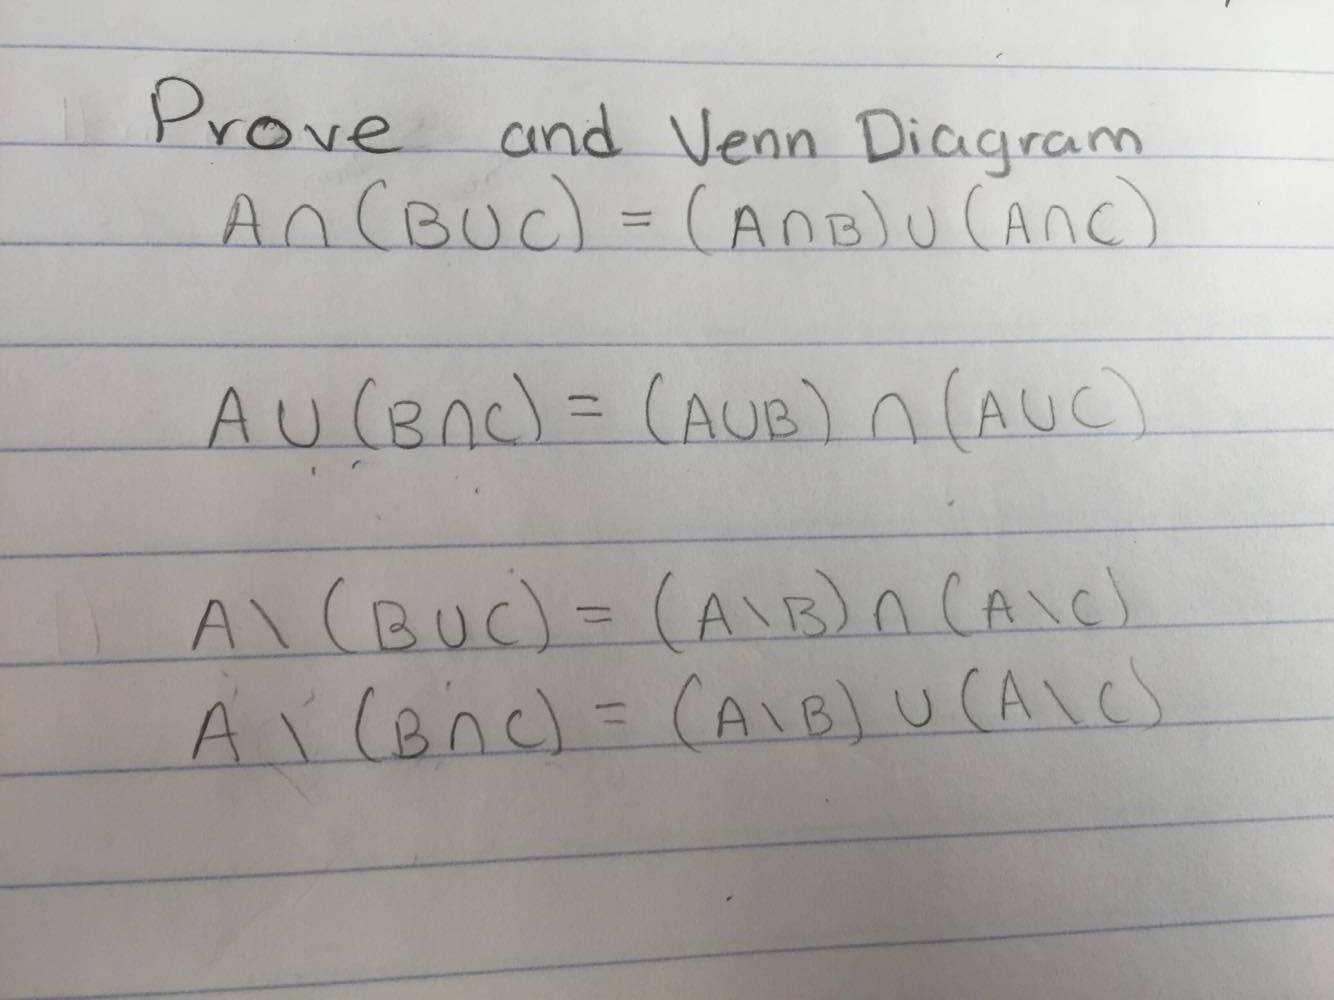 Prove and Venn Diagram
A∩(B∪C) = (A∩B)∪(A∩C)
A∪(B∩C) = (A∪B)∩(A∪C)
A\(B∪C) = (A\B)∩(A\C)
A\(B∩C) = (A\B)∪(A\C)